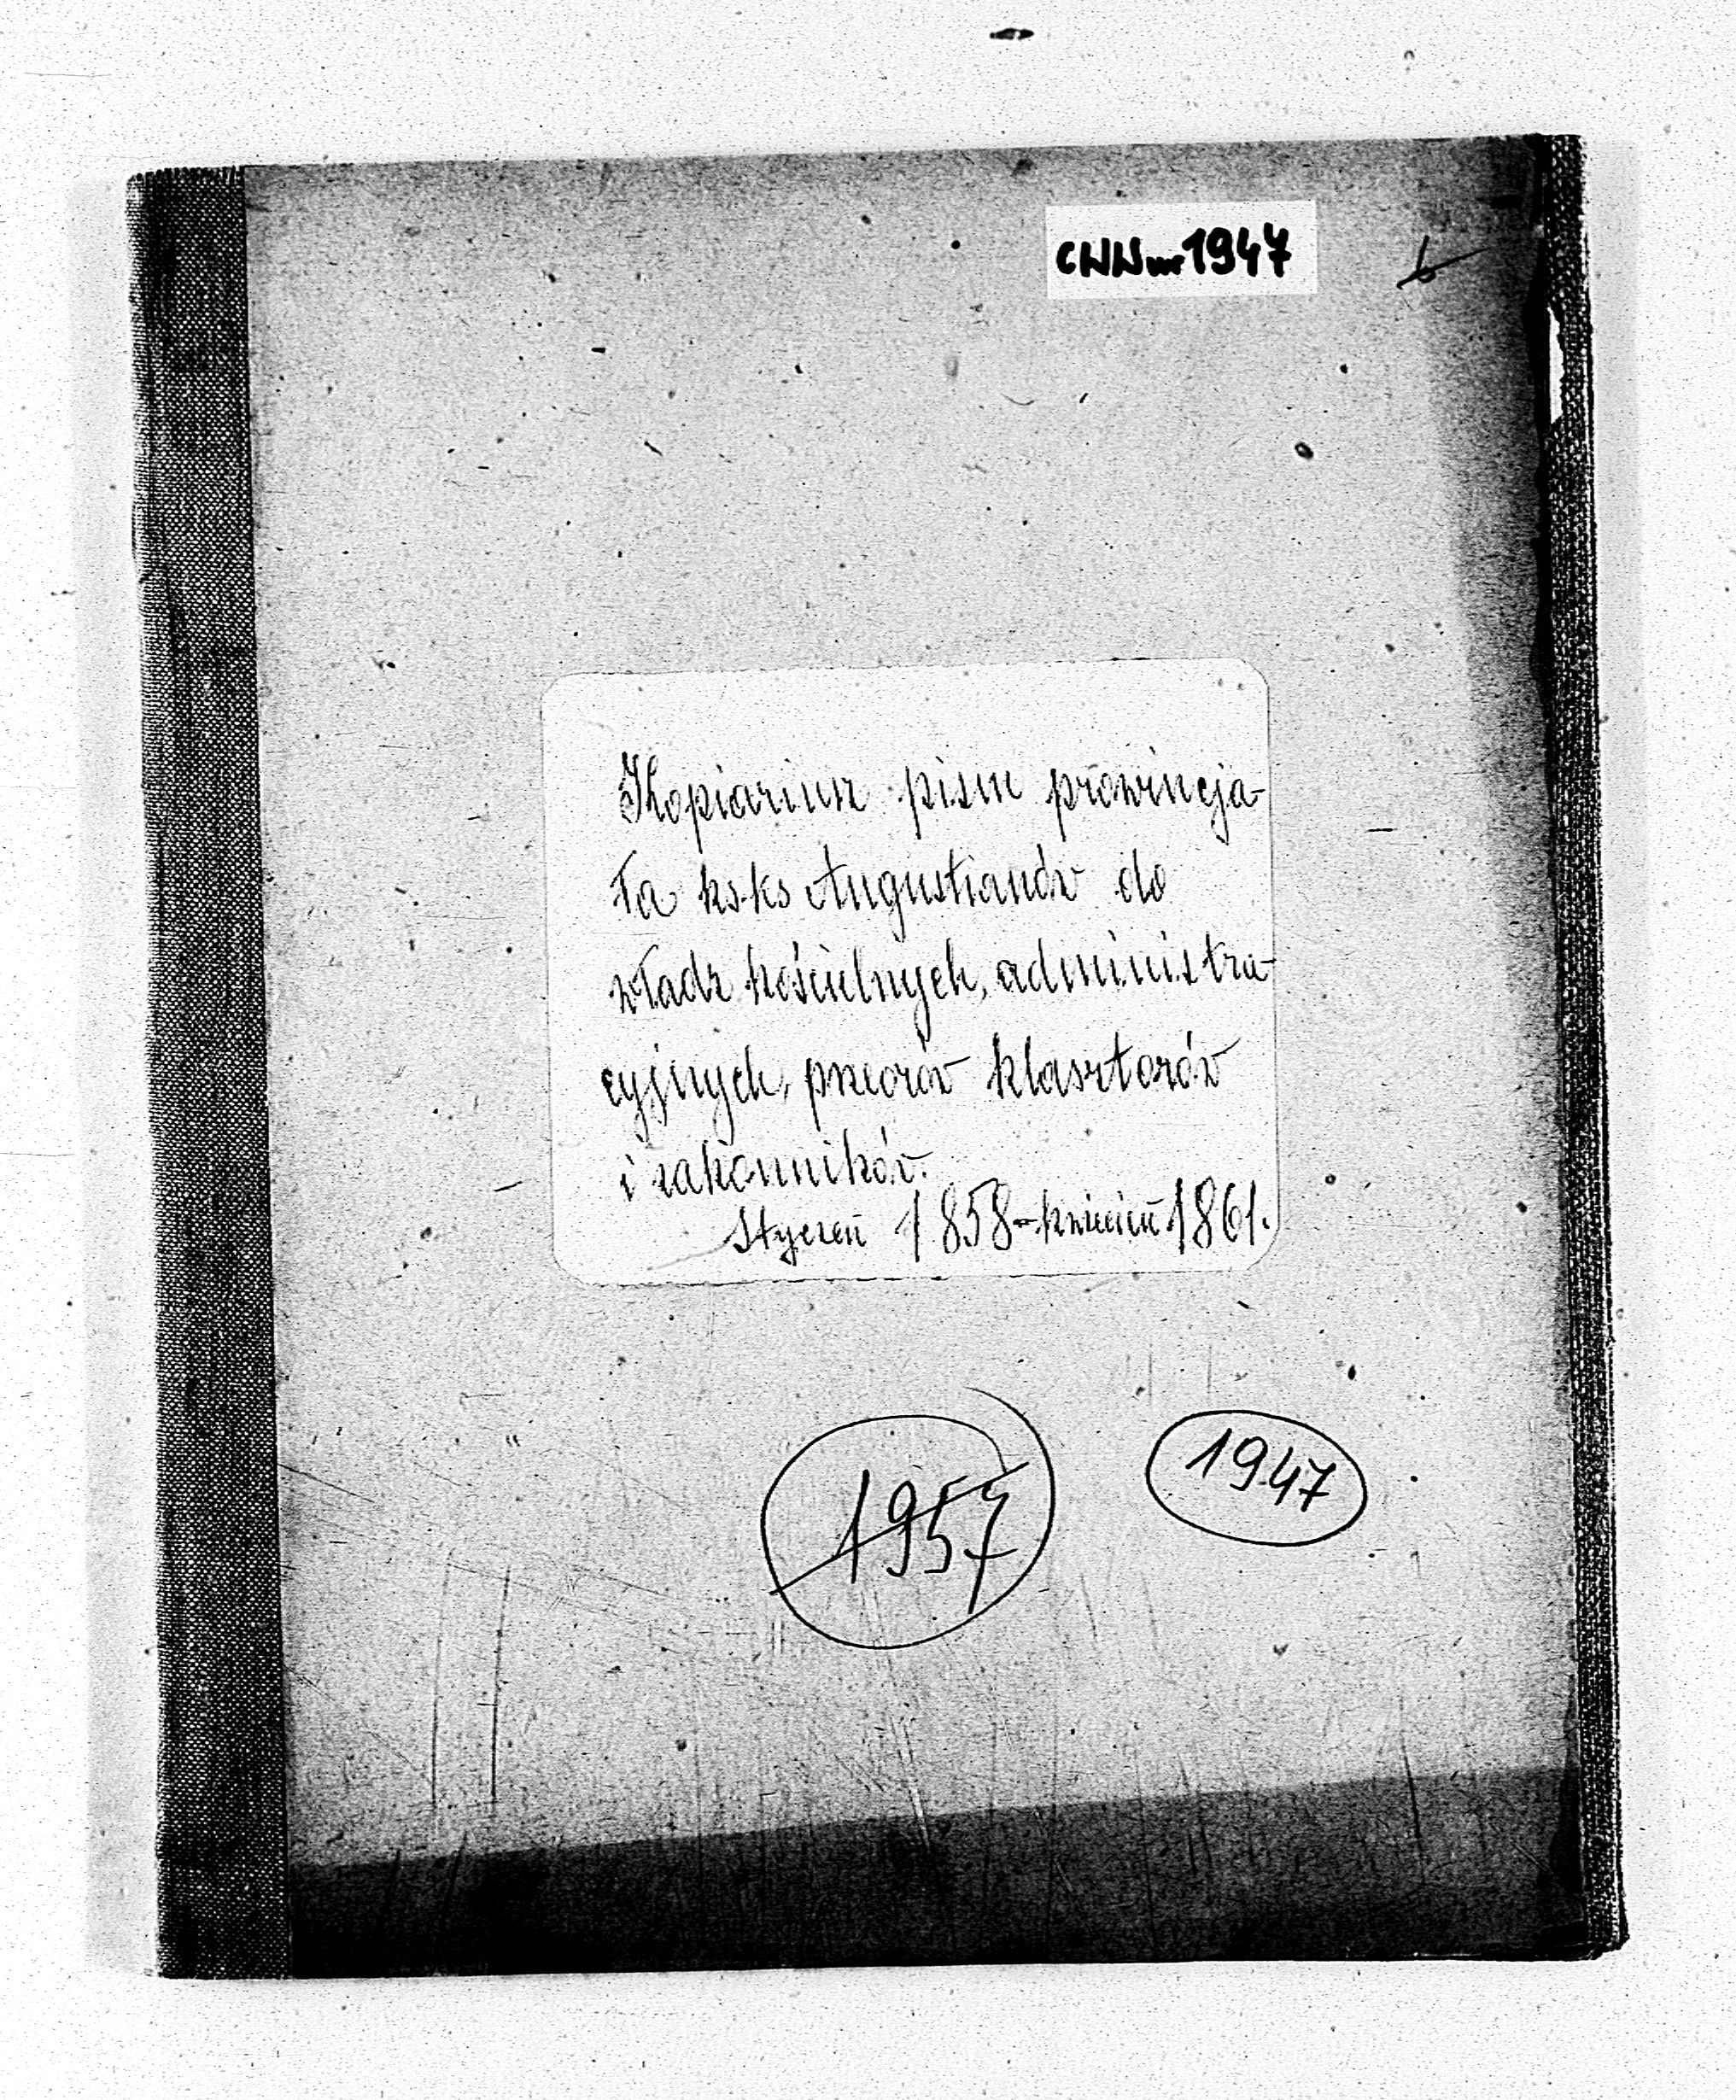 CWW nr 1947
6
Kopiariusz pism prowincja-
ła ks.ks Augustianów do
władz kościelnych, administra-
cyjnych, przeorów klasztorów
i zakonników.
Styczeń 1858 - kwiecień 1861.
1957
1947